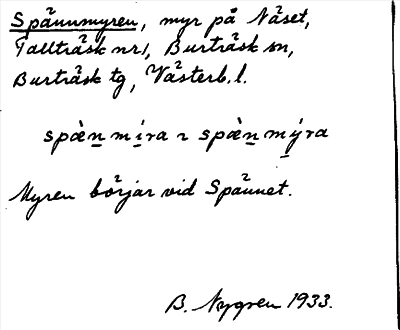 Spännmyren, myr på Näset,
Tallträsk nr 1, Burträsk sn,
Burträsk tg, Västerb. l.
spæ̀n̲ mí̲ra ɿ spæ̀n̲ mý̲ra
Myren börjar vid Spännet.
B. Nygren 1933.